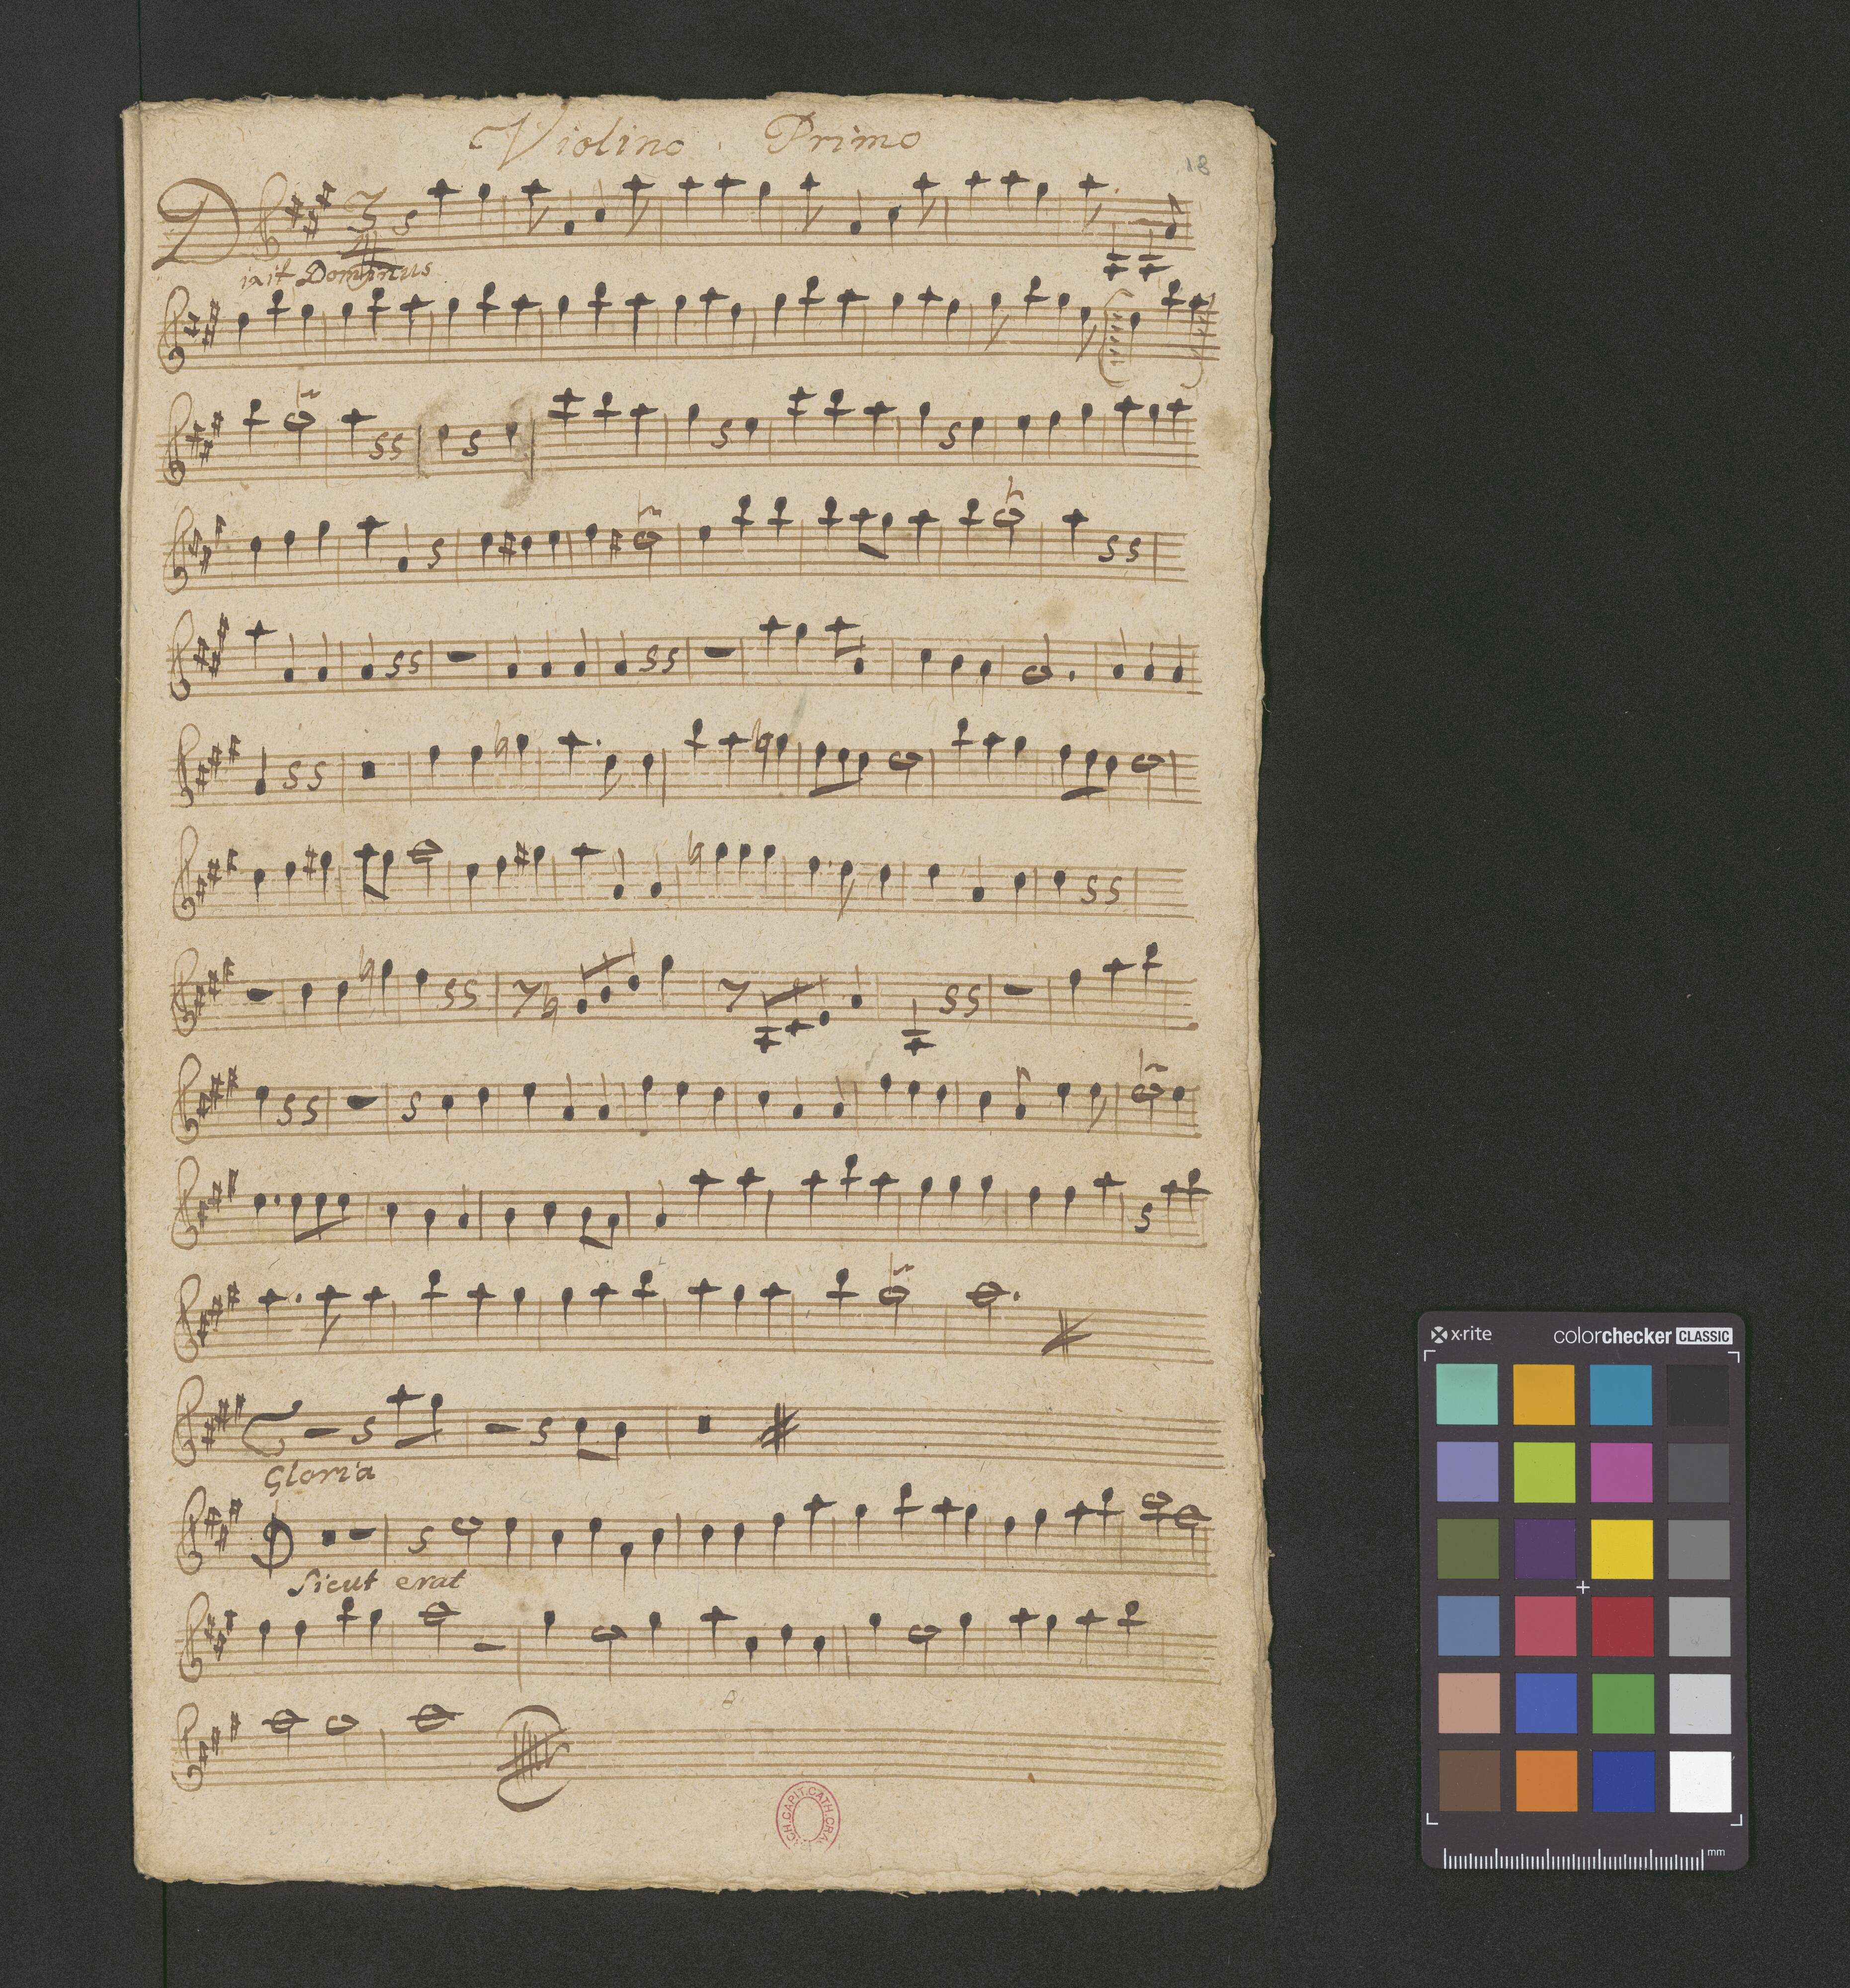 Violino Primo
18
Dixit Dominus
Gloria
Sicut erat
CH. CAPIT. CATH. CRA
x-rite colorchecker CLASSIC
mm